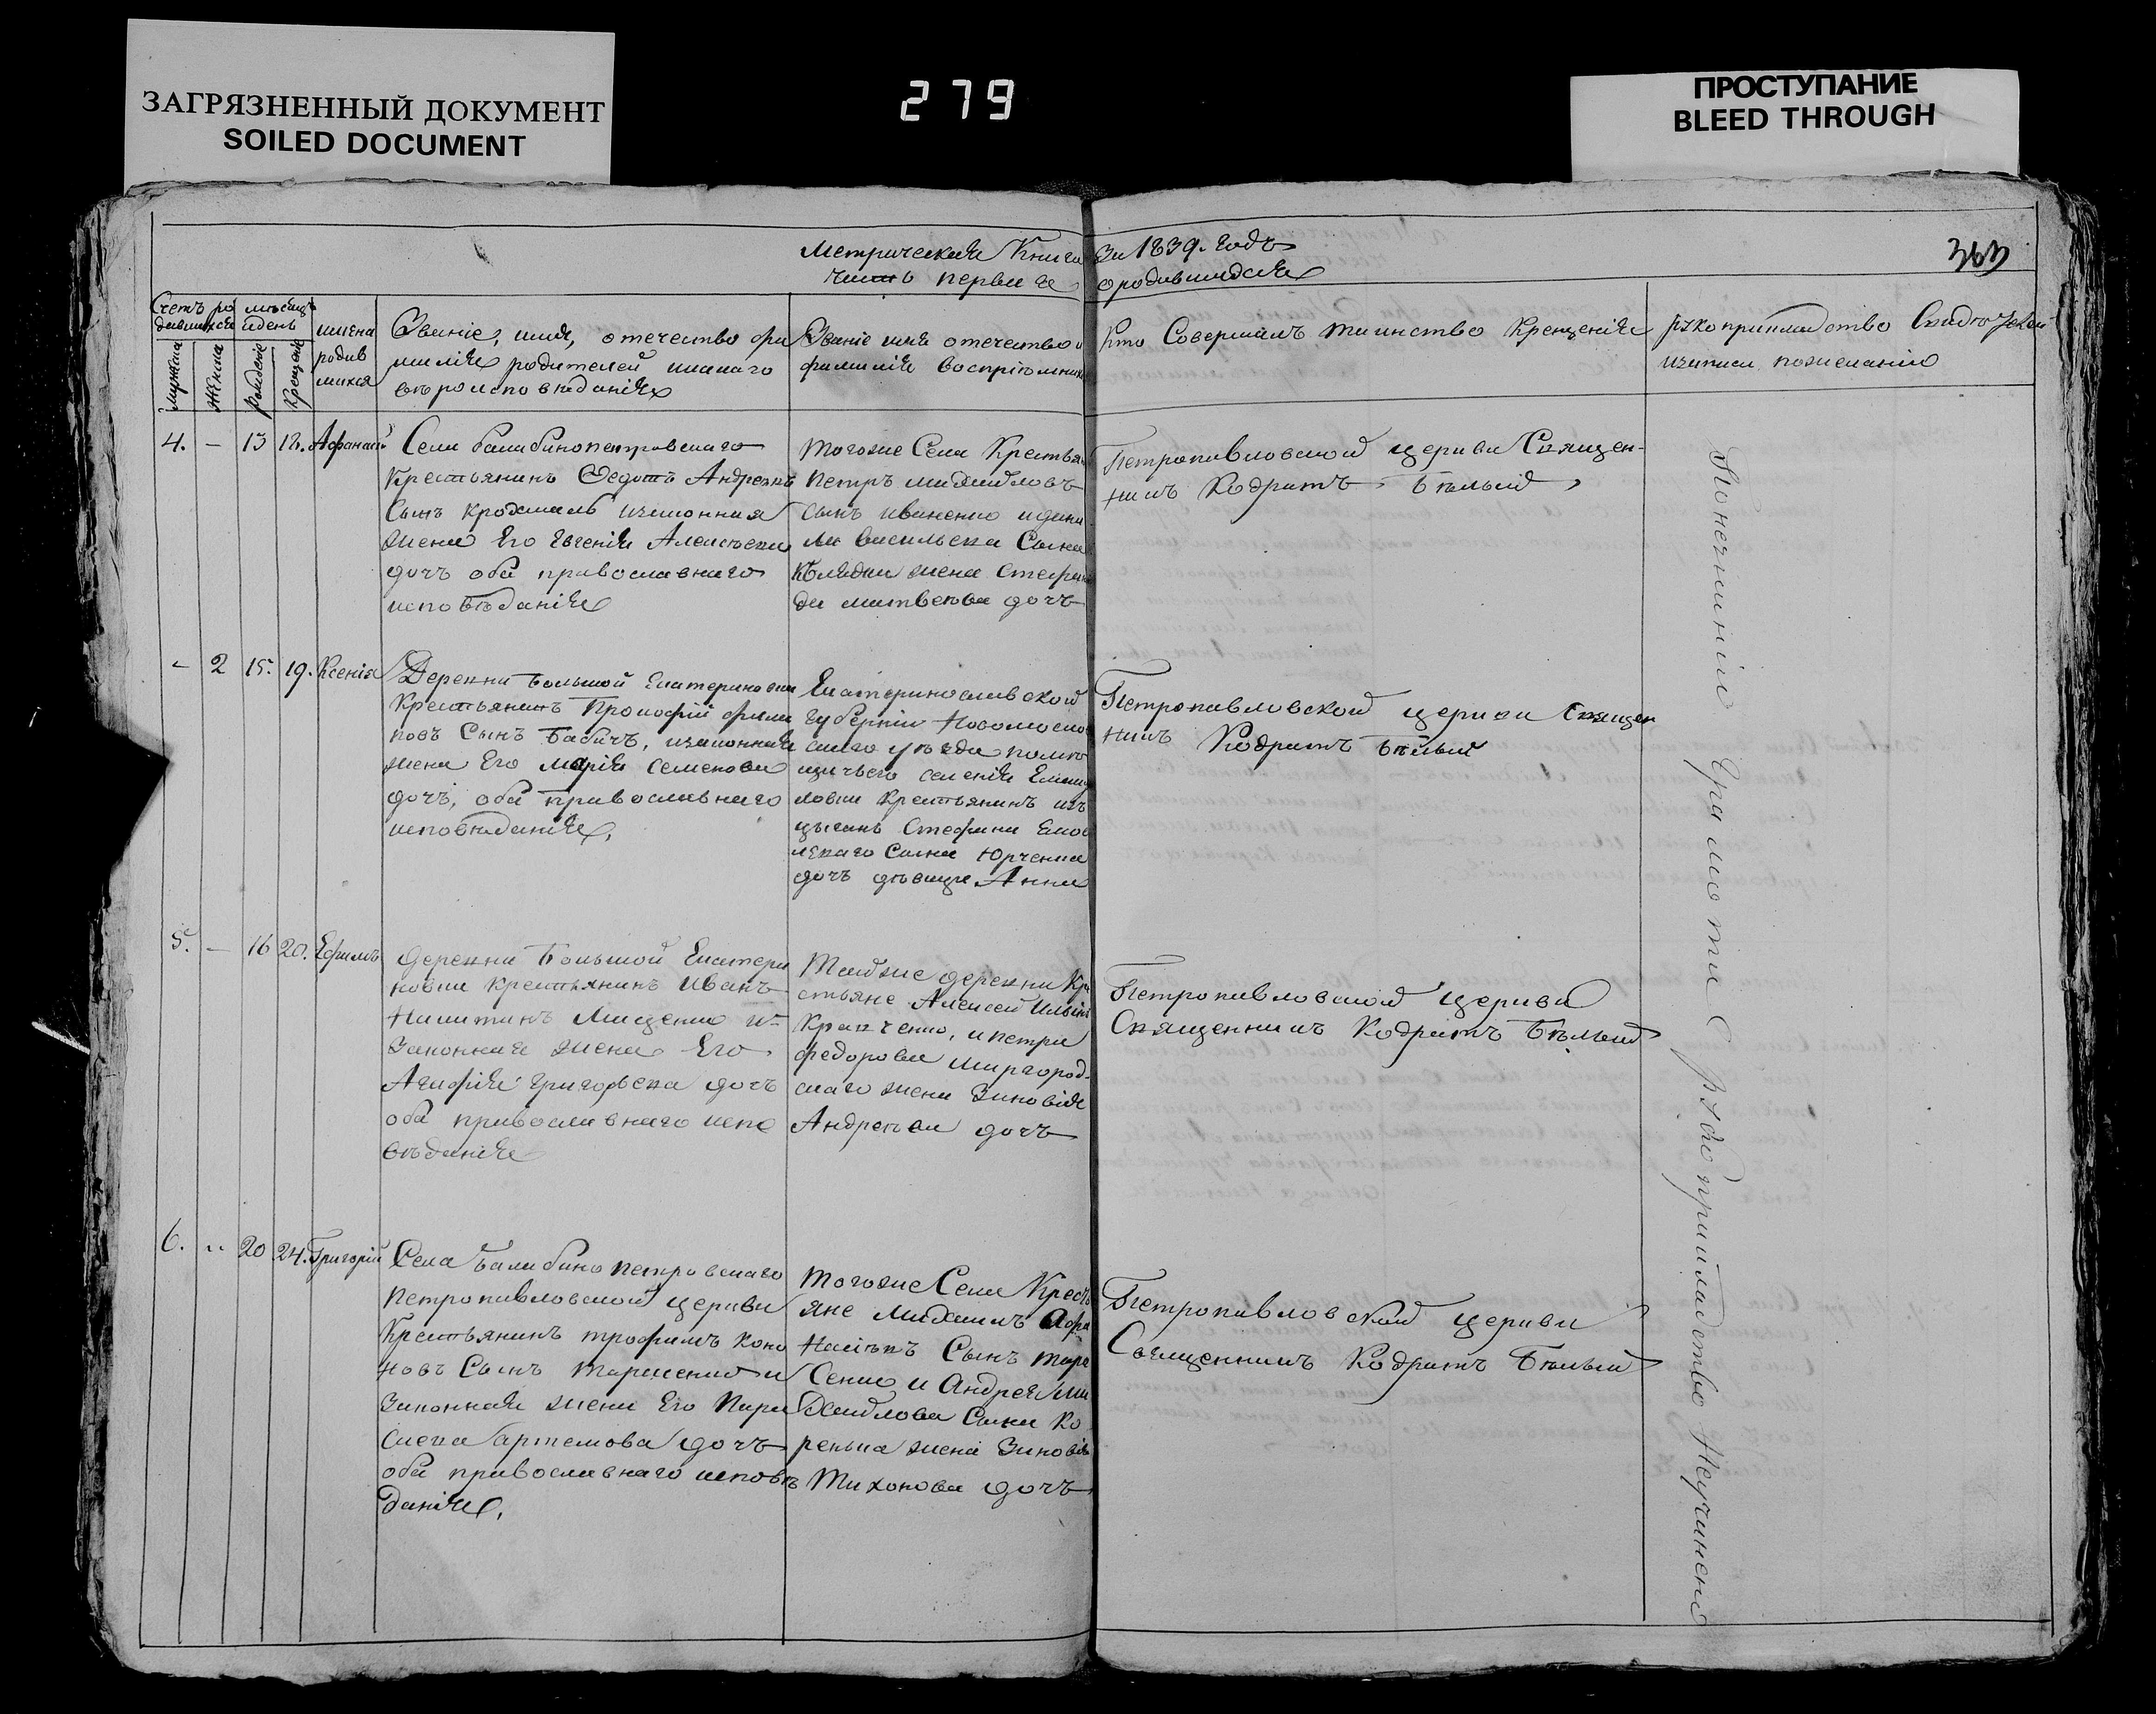 ЗАГРЯЗНЕННЫЙ ДОКУМЕНТ
SOILED DOCUMENT
279
ПРОСТУПАНИЕ
BLEED THROUGH
363
Метрическая Книга За 1839. годъ
часть первая о родившихся
Счетъ ро
дившихся
мужеска
женска
мѣсяцъ
и день
рожденіе
крещеніе
имена
родив
шихся
Званіе, имя, отечество фа
милія родителей и какаго
вѣроисповѣданія
Званіе имя отечество и
фамилія воспріемник
Кто Совершалъ таинство крещенія
рукоприкладство Свидѣтелей
записи по желанію
4. — 13 18. Афанасій
Села балабинопетровскаго
Крестьянинъ Федотъ Андреевъ
Сынъ Крохмаль и законная
жена Его Евгенія Алексѣева
дочъ оба православнаго
исповѣданія
Тогоже Села Крестьян
Петръ михайловъ
сынъ иваненко и дани
ла васильева Сына
жена Стефани
да матвеева дочъ
Петропавловской церкви Священ-
никъ Кодратъ Бѣлый
- 2 15. 19. Ксенія
Деревни большой Екатериновки
Крестьянинъ Прокофій фили
повъ Сынъ бабичъ, и законная
жена Его марія семенова
дочъ, оба православнаго
исповѣданія,
Екатеринославской
губерніи Новомоско
скаго уѣзда помѣ
щичьего селенія
ловки Крестьянинъ изъ
цыганъ Стефана
Сына Юрченка
дочъ дѣвица Анна
Петропавловской церкви Священ
никъ Кодратъ Бѣлый
5. — 16 20. Ефимъ
Деревни Большой Екатери
новки Крестьянинъ Иванъ
Никитинъ Мищенко и
Законная жена Его
Агафія григорьева дочъ
оба православнаго испо
вѣданія
Тойже деревни Кре
стьяне Алексей Ильинъ
Кравченко, и петра
федорова миргород-
скаго жена Зиновія
Андреева дочъ
Петропавловской церкви
Священникъ Кодратъ Бѣлый
6. „ 20 24. Григорій
Села Балабино петровскаго
петропавловской церкви
Крестьянинъ трофимъ коно
новъ Сынъ Тарасенко и
Законная жена Его Пара
скева артемова дочъ
оба православнаго исповѣ
данія,
Тогоже Села Кресть
яне Михаилъ Афа
насіевъ Сынъ тара
Сенко и Андрея Ми
хайлова Сына Ко
ренька жена Зиновія
Тихонова дочъ
Петропавловской церкви
Священникъ Кодратъ Бѣлый
По незнанію Грамоты рукоприкладство Неучинено